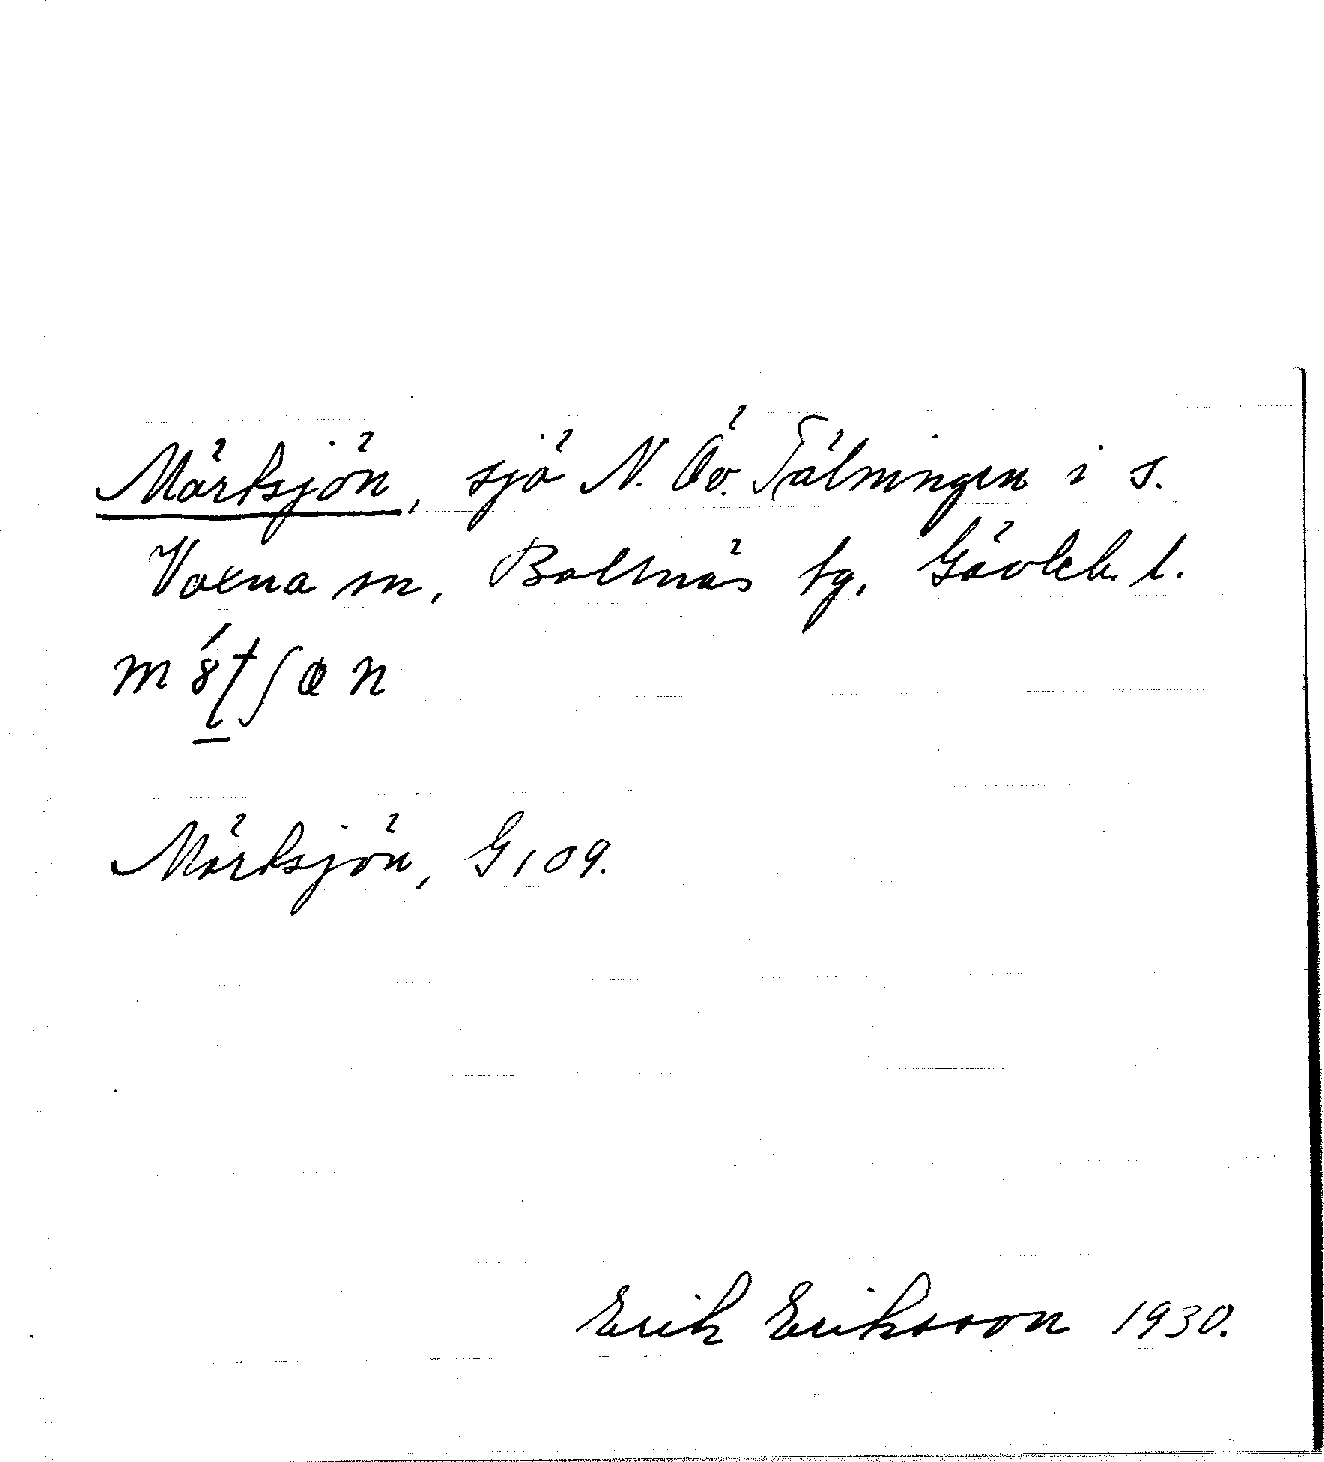 Mörtsjön, sjö N. Öv. Tälningen i s.
Voxna sn, Bollnäs tg, Gävleb. l.
Mörtsjön, G109.
Erik Eriksson 1930.